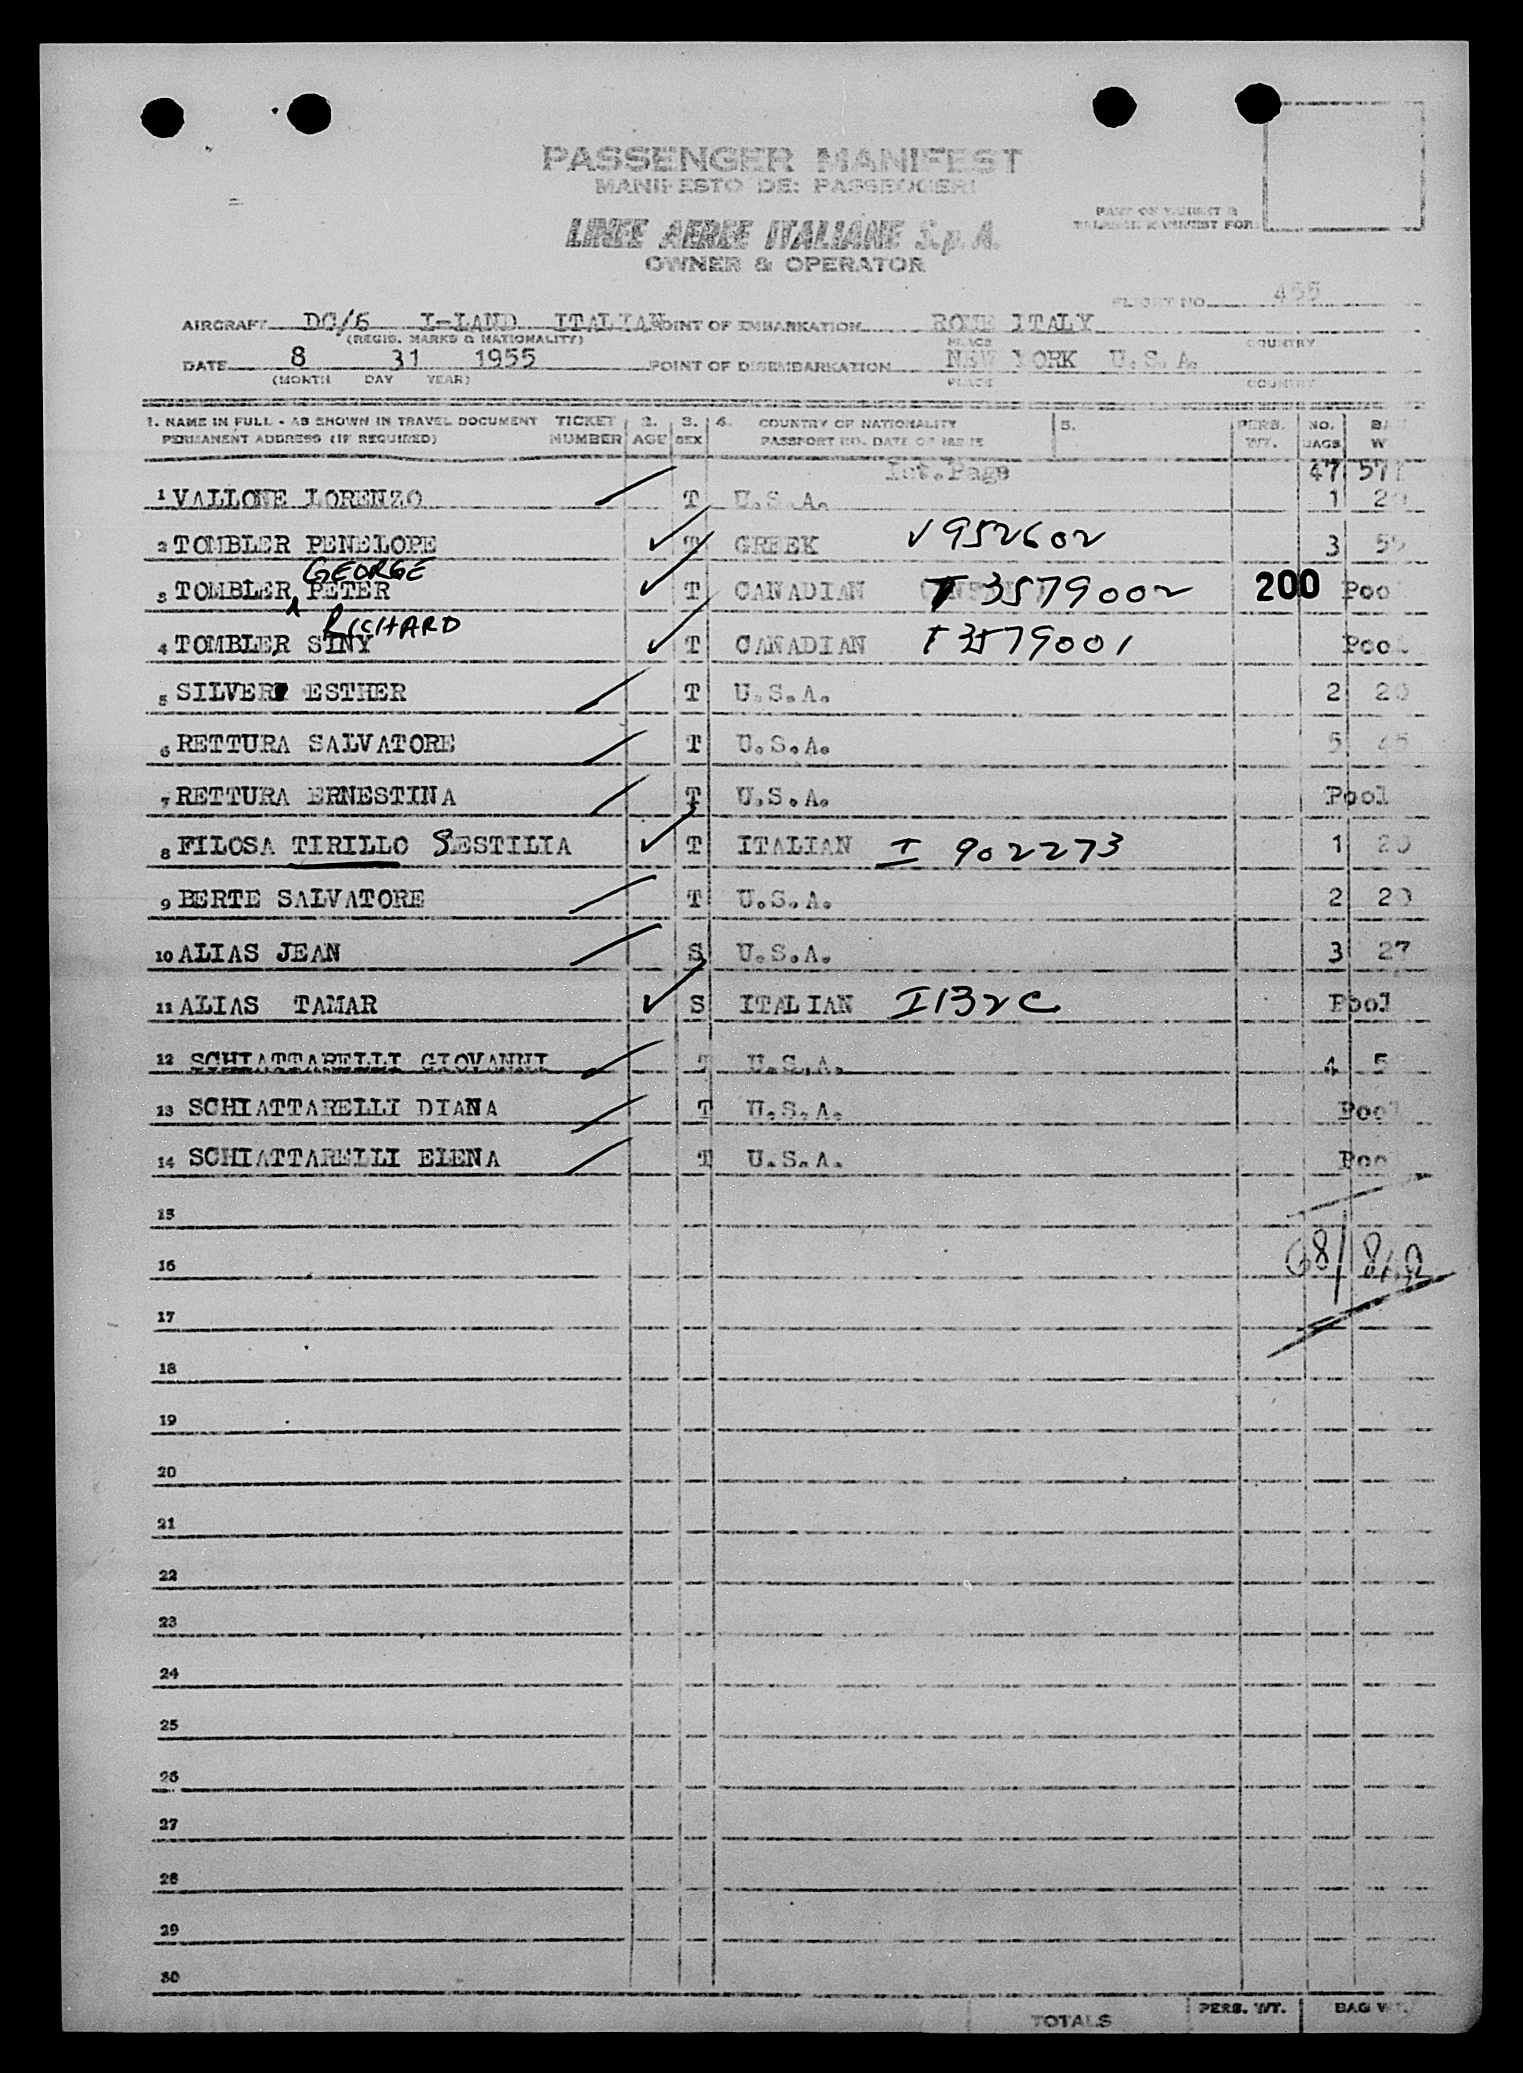 PASSENGER MANIFEST
MANIFESTO DEI PASSEGGERI
LINEE AEREE ITALIANE S.p.A.
OWNER & OPERATOR
PART OF WEIGHT &
BALANCE MANIFEST FOR
FLIGHT NO. 455
AIRCRAFT DC/6 I-LAND ITALIAN POINT OF EMBARKATION ROME ITALY
(REGIS. MARKS & NATIONALITY) PLACE COUNTRY
DATE 8 31 1955 POINT OF DISEMBARKATION NEW YORK U.S.A.
(MONTH DAY YEAR) PLACE COUNTRY
1. NAME IN FULL - AS SHOWN IN TRAVEL DOCUMENT TICKET 2. 3. 4. COUNTRY OF NATIONALITY 5. PERS. NO.
PERMANENT ADDRESS (IF REQUIRED) NUMBER AGE SEX PASSPORT NO. DATE OF ISSUE WT. BAGS
Ist.Page 47 577
1 VALLONE LORENZO T U.S.A. 1
2 TOMBLER PENELOPE T GREEK √952602 3
GEORGE
3 TOMBLER PETER T CANADIAN T 3579002 200 Poo
RICHARD
4 TOMBLER SINY T CANADIAN T 3579001 Pool
5 SILVER ESTHER T U.S.A. 2 20
6 RETTURA SALVATORE T U.S.A. 5 45
7 RETTURA ERNESTINA T U.S.A. Pool
8 FILOSA TIRILLO SESTILIA T ITALIAN I 902273 1 20
9 BERTE SALVATORE T U.S.A. 2 20
10 ALIAS JEAN S U.S.A. 3 27
11 ALIAS TAMAR S ITALIAN I132C Pool
12 SCHIATTARELLI GIOVANNI T U.S.A. 4 5
13 SCHIATTARELLI DIANA T U.S.A. Pool
14 SCHIATTARELLI ELENA T U.S.A. Poo
15
68/
16
17
18
19
20
21
22
23
24
25
26
27
28
29
30
TOTALS PERS. WT. BAG WT.